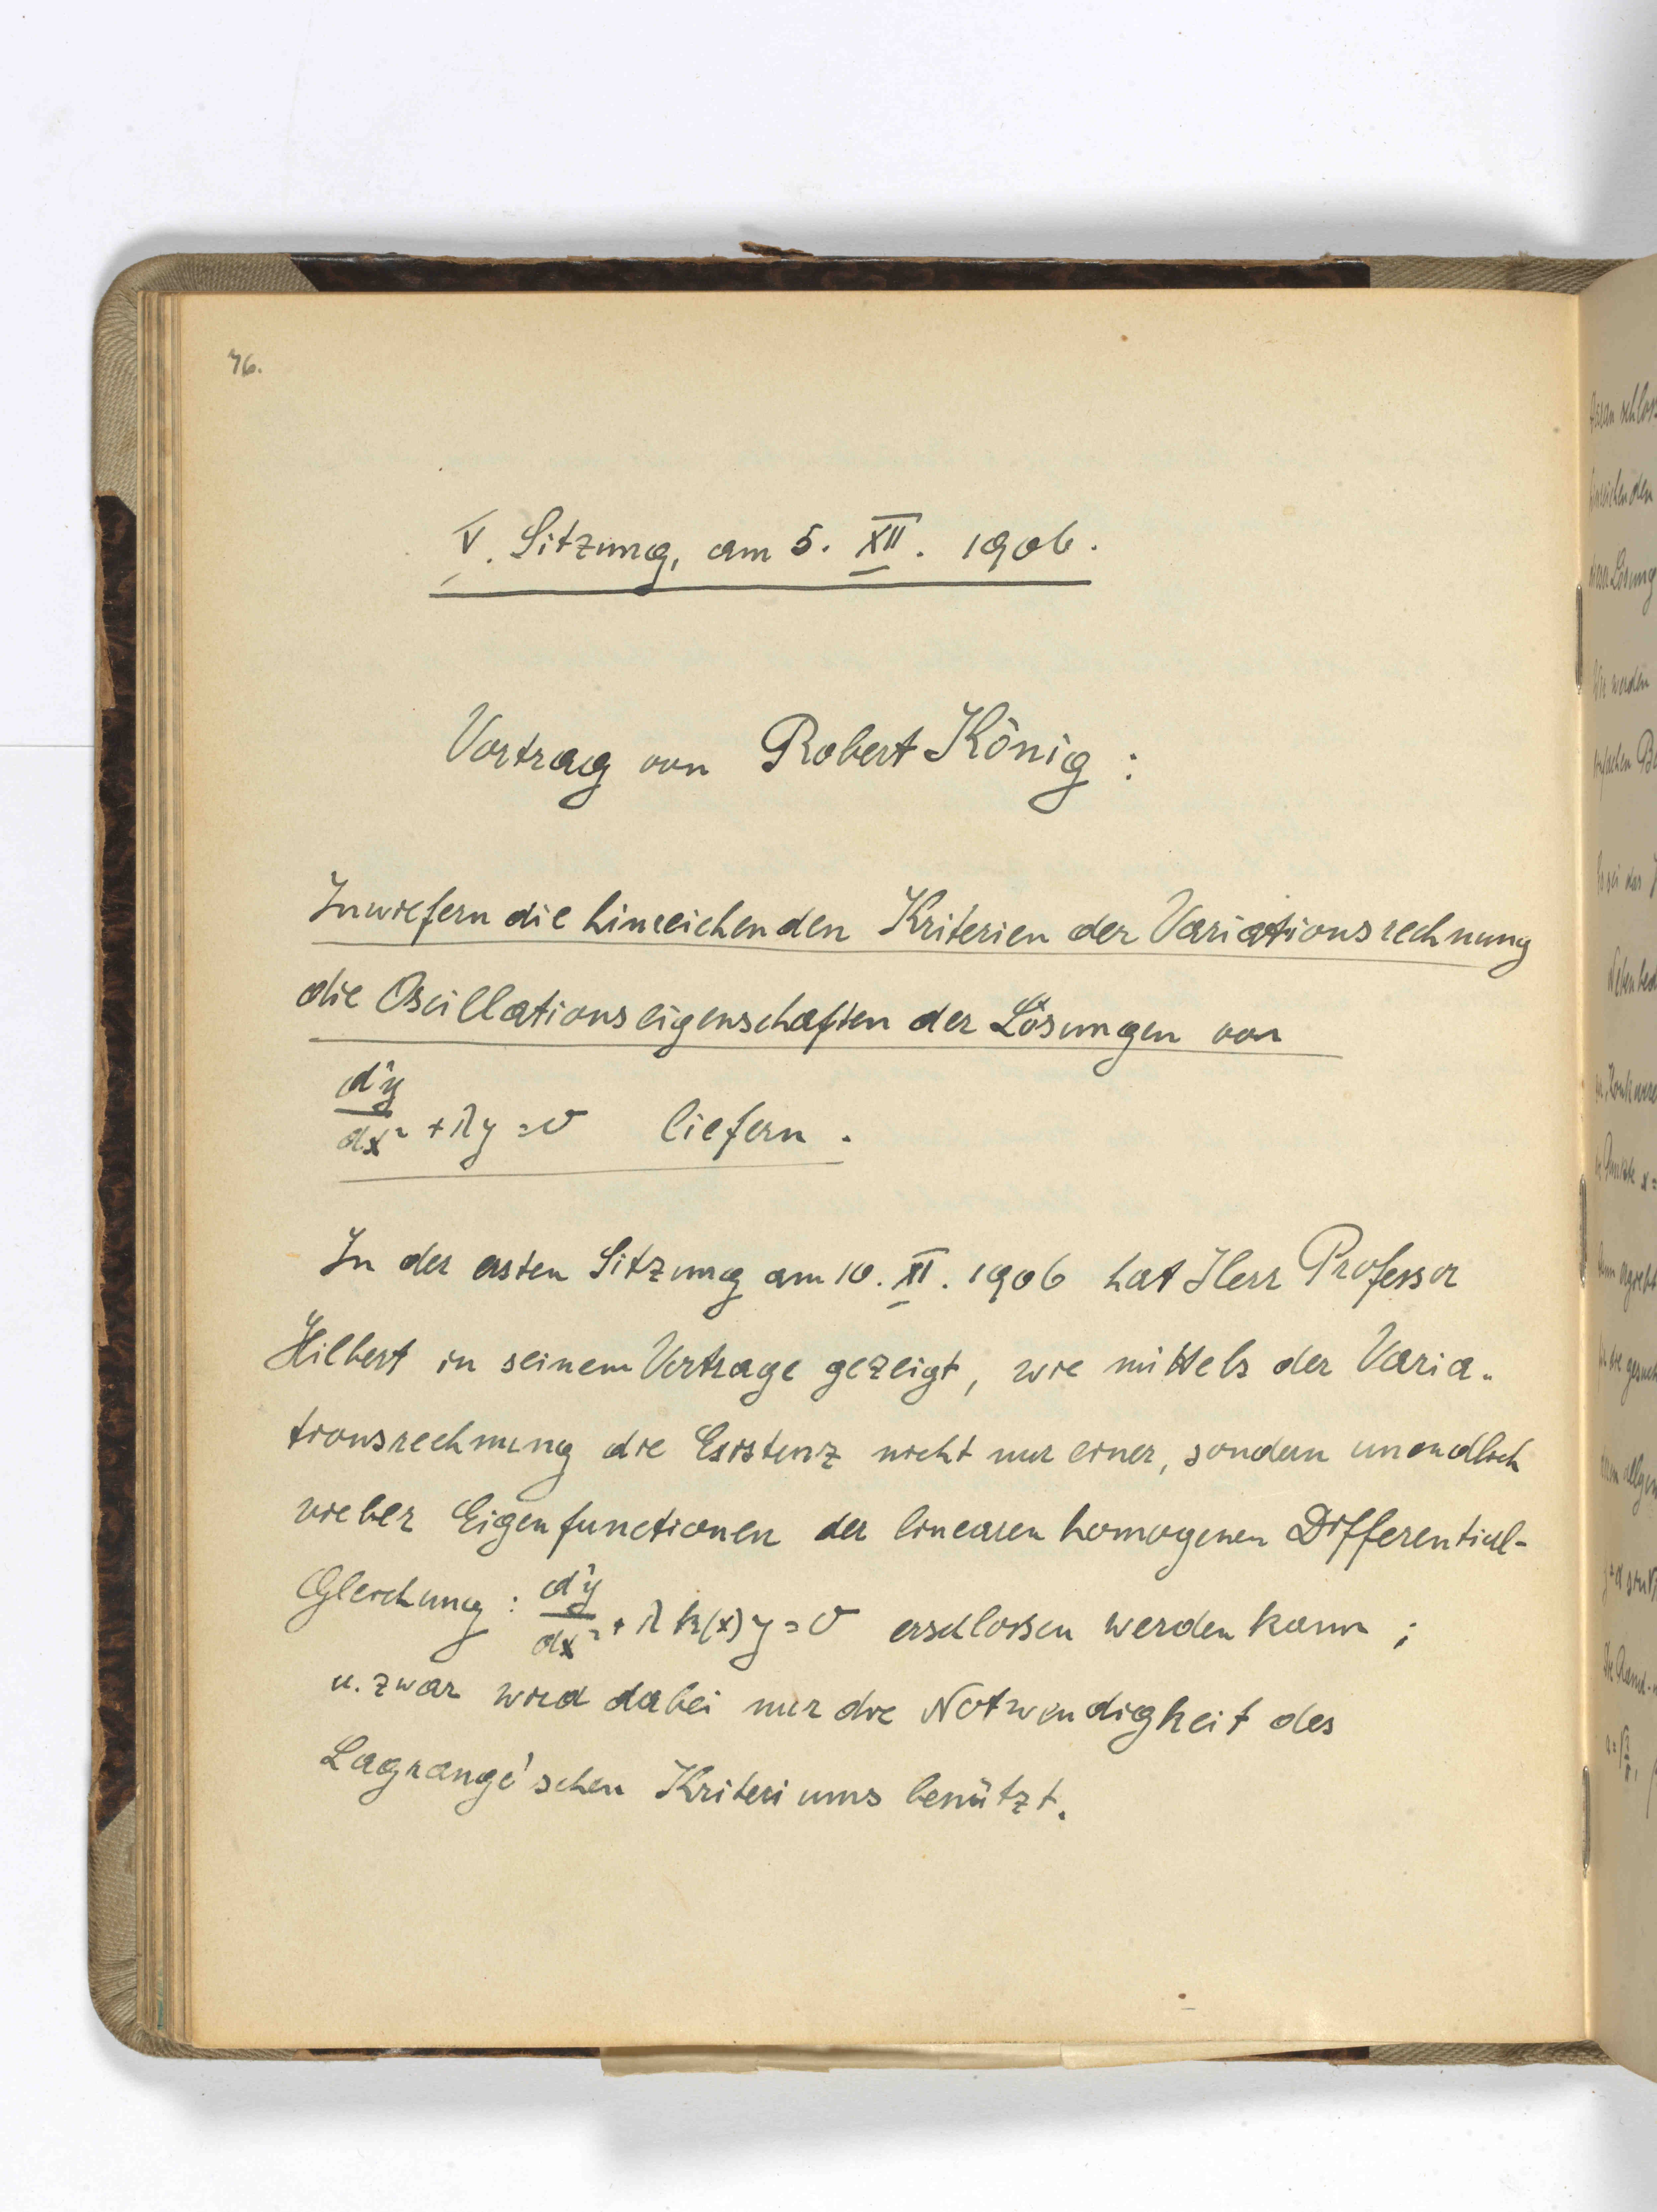 76.
V. Sitzung, am 5. XII. 1906.
Vortrag von Robert König:
Inwiefern die hinreichenden Kriterien der Variationsrechnung
die Oscillationseigenschaften der Lösungen von
d²y/dx² + λy = 0 liefern.
In der ersten Sitzung am 10. XI. 1906 hat Herr Professor
Hilbert in seinem Vortrage gezeigt, wie mittels der Varia-
tionsrechnung die Existenz nicht nur einer, sondern unendlich
vieler Eigenfunctionen der linearen homogenen Differential-
Gleichung: d²y/dx² + λ k(x) y = 0 erschlossen werden kann;
u. zwar wird dabei nur die Notwendigkeit des
Lagrange'schen Kriteriums benützt.